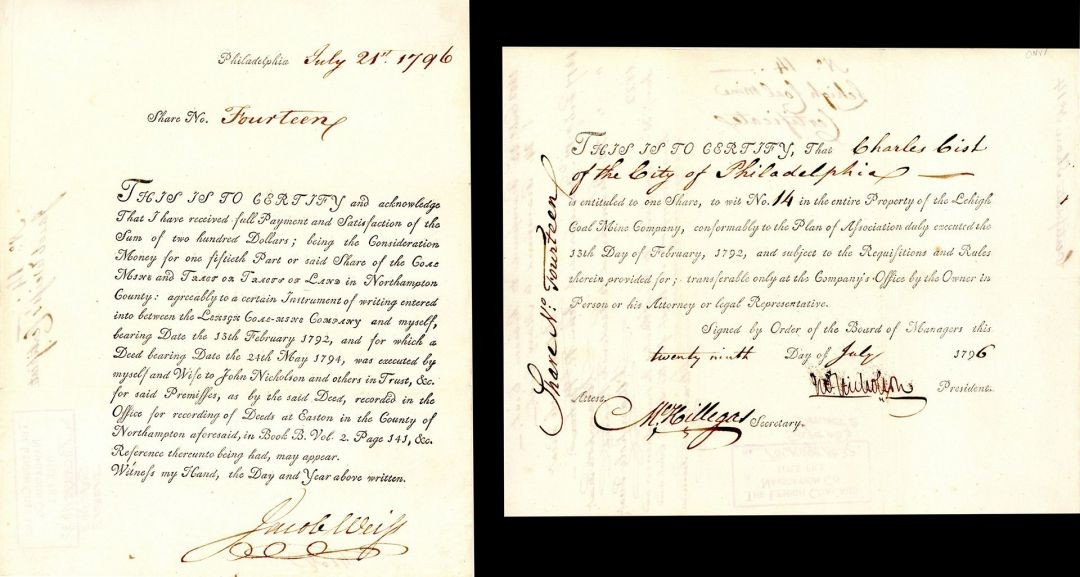 Philadelphia July 21st. 1796
Share No. Fourteen
THIS IS TO CERTIFY and acknowledge
That I have received full Payment and Satisfaction of the
Sum of two hundred Dollars; being the Consideration
Money for one fiftieth Part or said Share of the COAL
MINE and TRACT OR TRACTS OF LAND in Northampton
County: agreeably to a certain Instrument of writing entered
into between the LEHIGH COAL-MINE COMPANY and myself,
bearing Date the 13th February 1792, and for which a
Deed bearing Date the 24th May 1794, was executed by
myself and Wife to John Nicholson and others in Trust, &c.
for said Premisses, as by the said Deed, recorded in the
Office for recording of Deeds at Easton in the County of
Northampton aforesaid, in Book B. Vol. 2. Page 141, &c.
Reference thereunto being had, may appear.
Witness my Hand, the Day and Year above written.
Jacob Weiss
No. 14
Lehigh Coal mine
Certificate
Share No: Fourteen
THIS IS TO CERTIFY, That Charles Cist
of the City of Philadelphia
is entituled to one Share, to wit No. 14 in the entire Property of the Lehigh
Coal Mine Company, conformably to the Plan of Association duly executed the
13th Day of February, 1792, and subject to the Requisitions and Rules
therein provided for; transferable only at the Company's Office by the Owner in
Person or his Attorney or legal Representative.
Signed by Order of the Board of Managers this
twenty ninth Day of July 1796
Jno. Nicholson President.
Attest.
Ml Hillegas Secretary.
THE LEHIGH COAL AND
NAVIGATION CO.